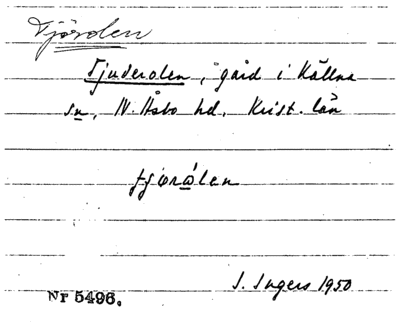 Tjörden
Tjuderalen, gård i Källna
sn, N. Åsbo hd, Krist. län
tjorålen
I. Ingers 1950
Nr 5496.